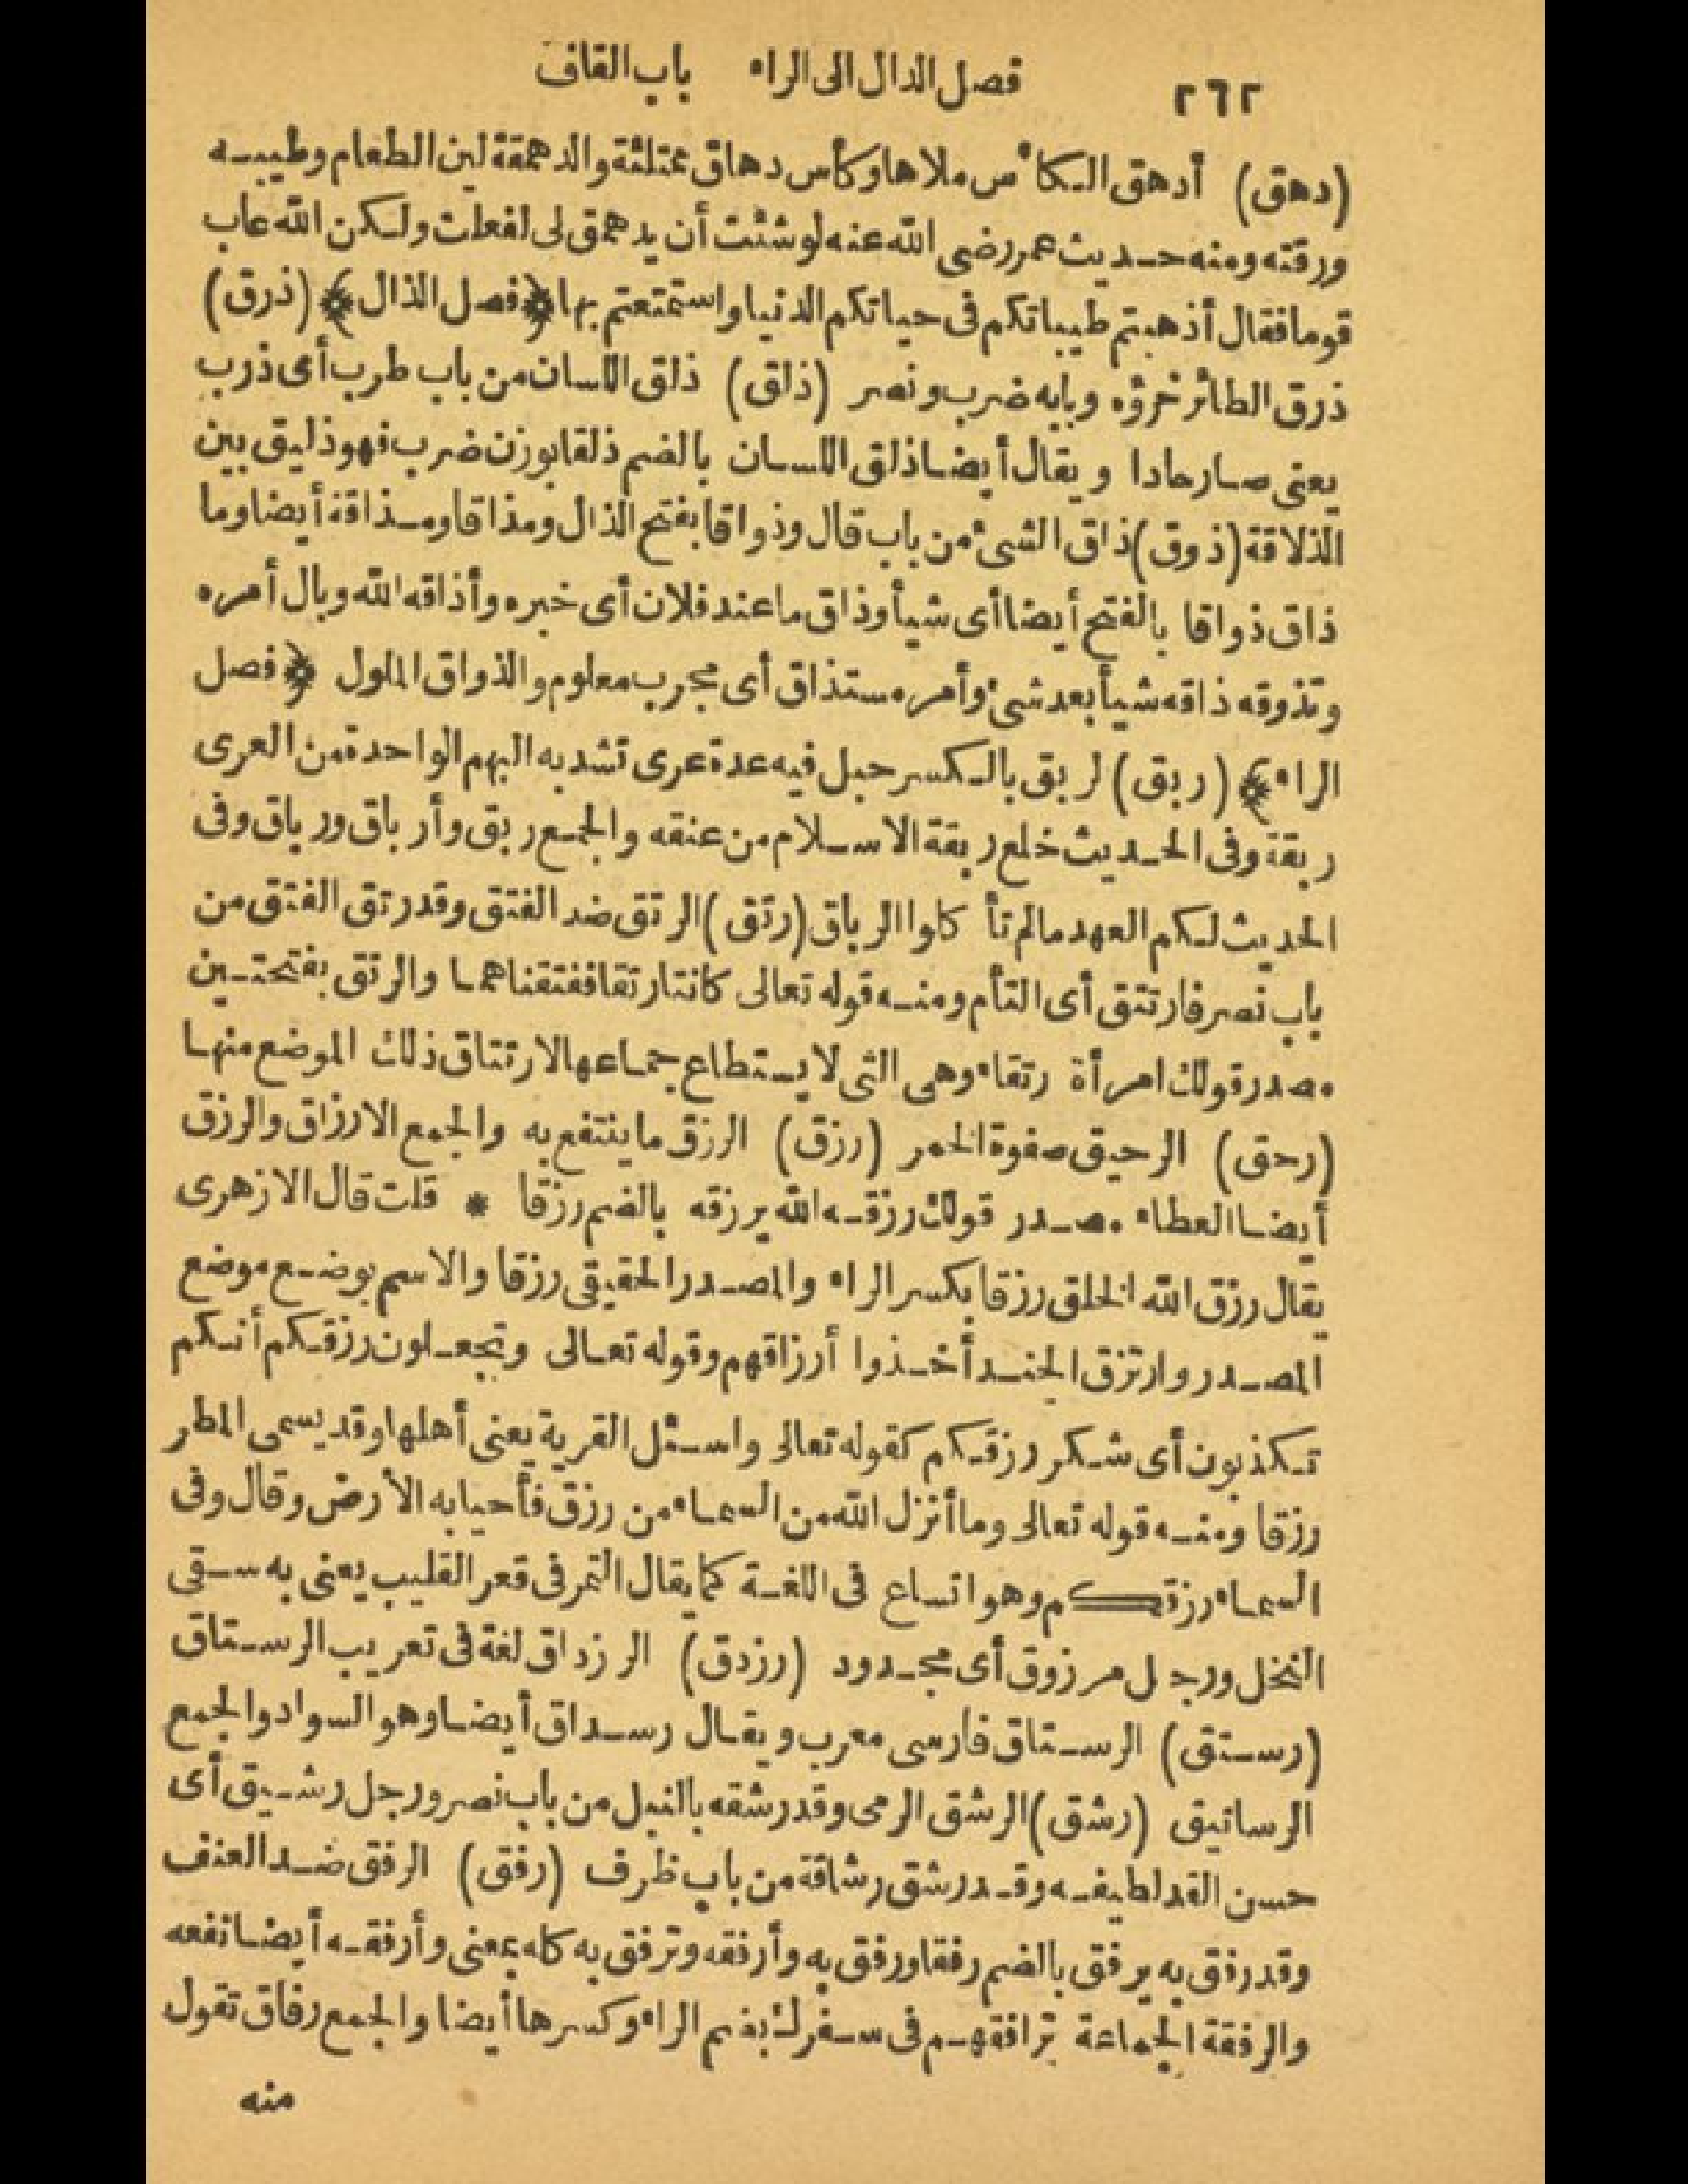 ٢٦٢ فصل الدال الى الراء باب القاف
(دهق) أدهق الكأس ملاها وكأس دهاق ممتلئة والدهمقة لين الطعام وطيبه
ورقته ومنه حديث عمر رضى الله عنه لو شئت أن يدهمق لى لفعلت ولكن الله عاب
قوما فقال أذهبتم طيباتكم فى حياتكم الدنيا واستمتعتم بها ﴿فصل الذال﴾ (ذرق)
ذرق الطائر خرؤه وبابه ضرب ونصر (ذلق) ذلق اللسان من باب طرب أى ذرب
يعنى صار حادا ويقال أيضا ذلق اللسان بالضم ذلقا بوزن ضرب فهو ذليق بين
الذلاقة (ذوق) ذاق الشىء من باب قال وذواقا بفتح الذال ومذاقا ومذاقة أيضا وما
ذاق ذواقا بالفتح أيضا أى شيأ وذاق ما عند فلان أى خبره وأذاقه الله وبال أمره
وتذوقه ذاقه شيأ بعد شىء وأمر مستذاق أى مجرب معلوم والذواق الملول ﴿فصل
الراء﴾ (ربق) لربق بالكسر حبل فيه عدة عرى تشد به البهم الواحدة من العرى
ربقة وفى الحديث خلع ربقة الاسلام من عنقه والجمع ربق وأرباق ورباق وفى
الحديث لكم العهد مالم تأكلوا الرباق (رتق) الرتق ضد الفتق وقد رتق الفتق من
باب نصر فارتتق أى التأم ومنه قوله تعالى كانتا رتقا ففتقناهما والرتق بفتحتين
مصدر قولك امرأة رتقاء وهى التى لا يستطاع جماعها لارتتاق ذلك الموضع منها
(رحق) الرحيق صفوة الخمر (رزق) الرزق ما ينتفع به والجمع الارزاق والرزق
أيضا العطاء مصدر قولك رزقه الله يرزقه بالضم رزقا * قلت قال الازهرى
يقال رزق الله الخلق رزقا بكسر الراء والمصدر الحقيقى رزقا والاسم يوضع موضع
المصدر وارتزق الجند أخذوا أرزاقهم وقوله تعالى وتجعلون رزقكم أنكم
تكذبون أى شكر رزقكم كقوله تعالى واسئل القرية يعنى أهلها وقد يسمى المطر
رزقا ومنه قوله تعالى وما أنزل الله من السماء من رزق فأحيا به الأرض وقال وفى
السماء رزقكم وهو اتساع فى اللغة كما يقال التمر فى قعر القليب يعنى به سقى
النخل ورجل مرزوق أى مجدود (رزدق) الرزداق لغة فى تعريب الرستاق
(رستق) الرستاق فارسى معرب ويقال رسداق أيضا وهو السواد والجمع
الرساتيق (رشق) الرشق الرمى وقد رشقه بالنبل من باب نصر ورجل رشيق أى
حسن القد لطيفه وقد رشق رشاقة من باب ظرف (رفق) الرفق ضد العنف
وقد رفق به يرفق بالضم رفقا ورفق به وأرفقه وترفق به كله بمعنى وأرفقه أيضا نفعه
والرفقة الجماعة ترافقهم فى سفرك بضم الراء وكسرها أيضا والجمع رفاق تقول
منه